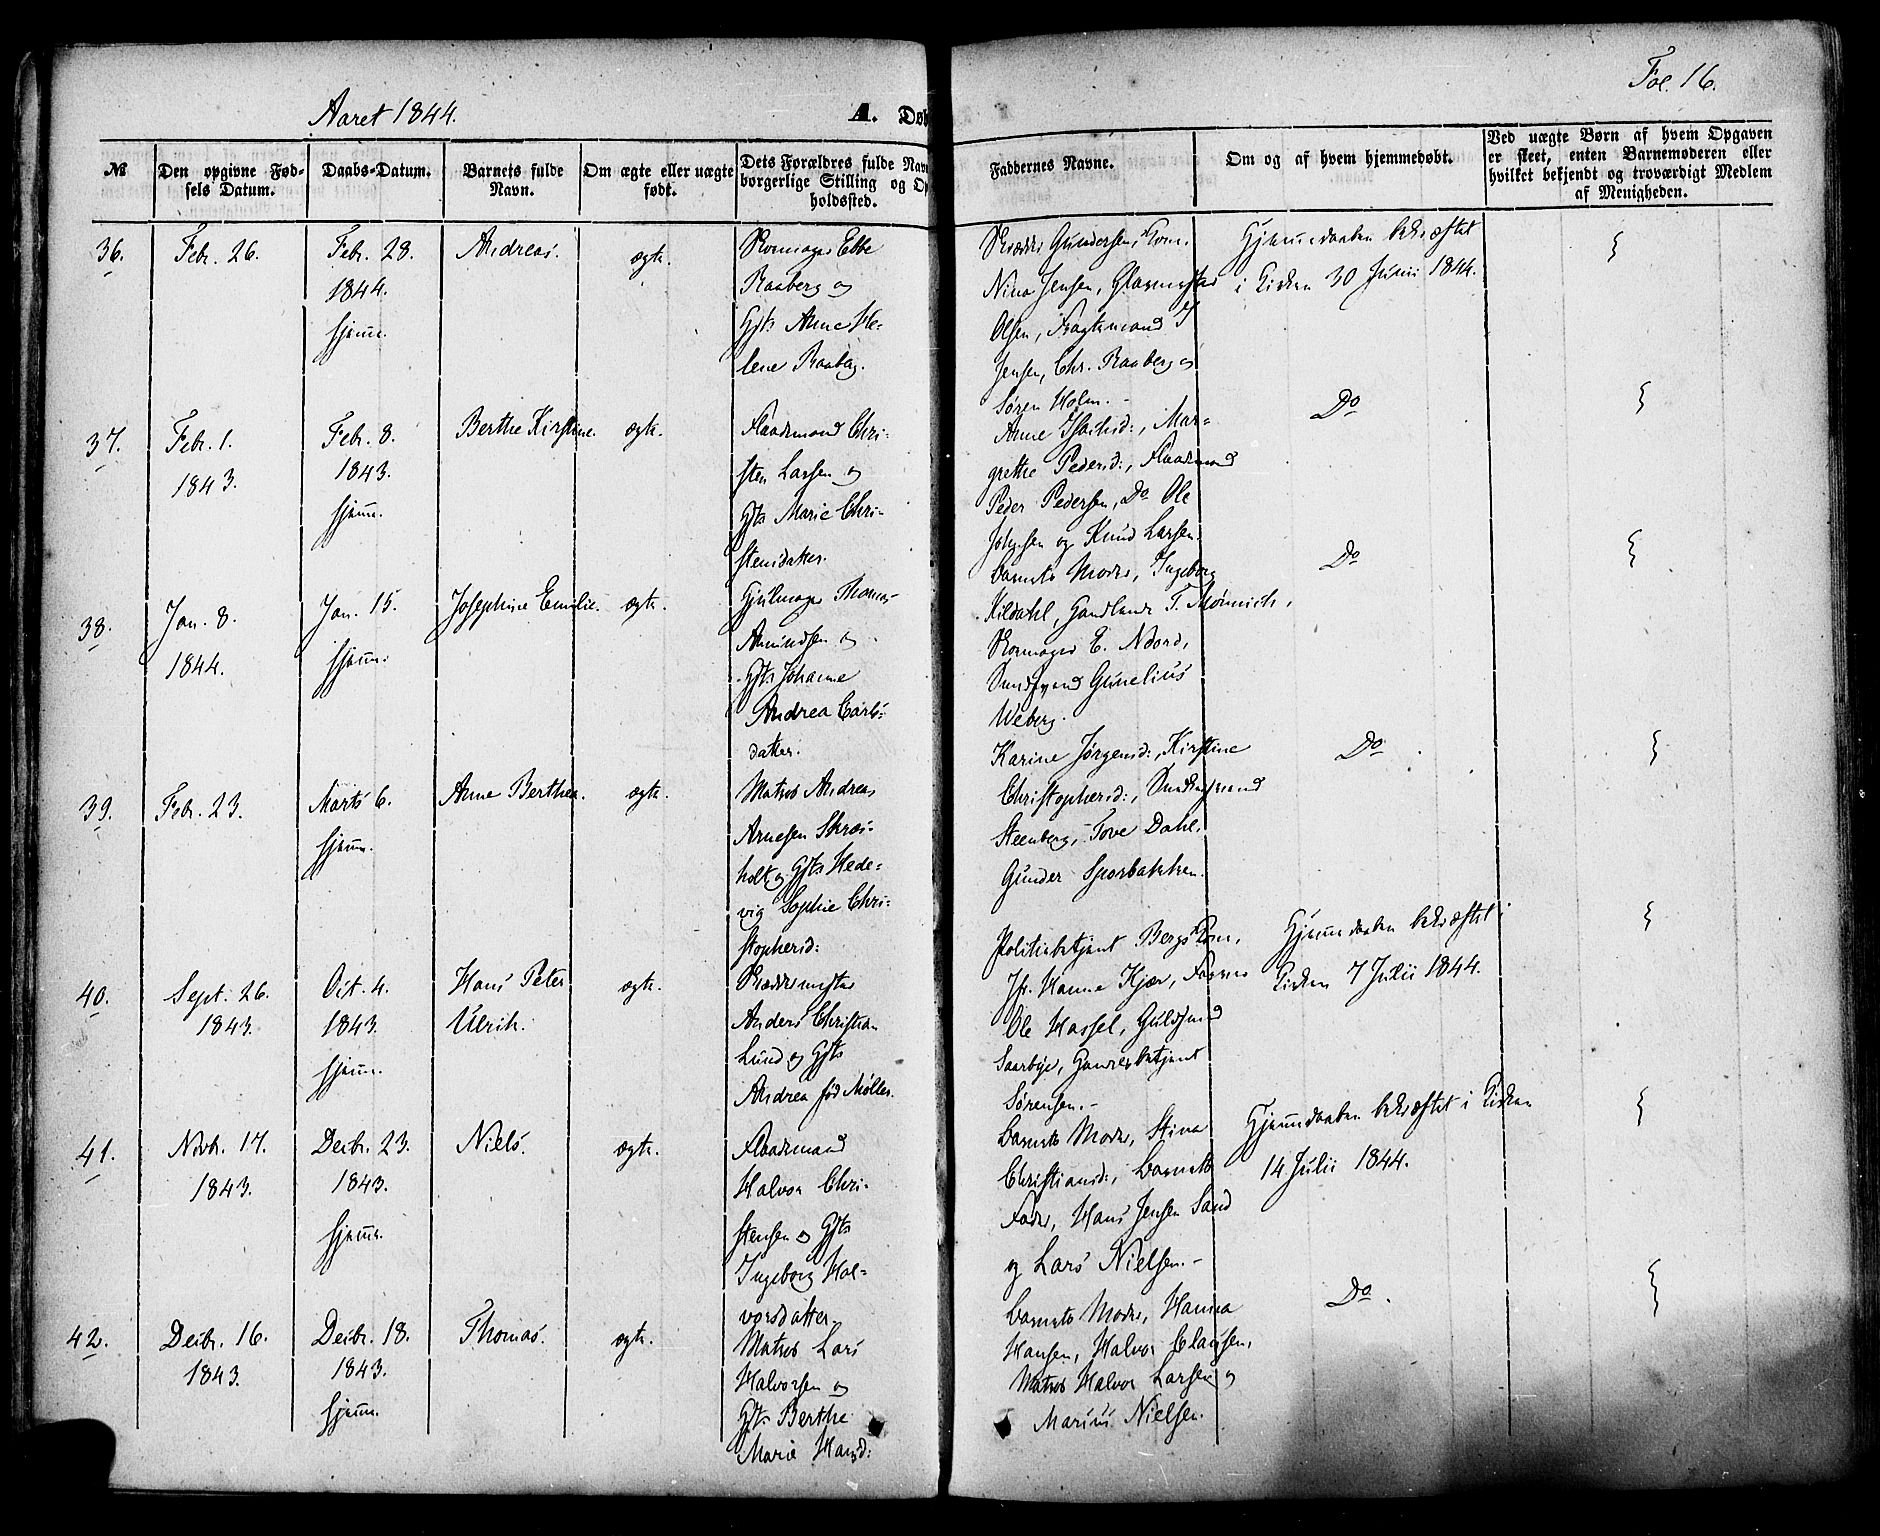 Aaret 1844.
A. Døb
Fol. 16.
№
Den opgivne Fød-
sels Datum.
Daabs-Datum.
Barnets fulde
Navn.
Om ægte eller uægte
født.
Dets Forældres fulde Nav
borgerlige Stilling og Op
holdssted.
Faddernes Navne.
Om og af hvem hjemmedøbt.
Ved uægte Børn af hvem Opgaven
er skeet, enten Barnemoderen eller
hvilket bekjendt og troværdigt Medlem
af Menigheden.
36.
Febr. 26.
Febr. 28.
1844.
hjeme.
Andreas.
ægte.
Skomager Ebbe
Raaberg og
Gjts Anne He-
lene Raaberg.
Skrædder Gundersen, Tom.
Nina Jensen, Glasmester
Olsen, Fragtemand
Jensen, Chr. Raaberg og
Søren Holm.-
Hjemmedaaben bekræftet
i Kirken 30 Junii 1844.
37.
Febr. 1.
1843.
Febr. 8.
1843.
hjeme.
Berthe Kirstine.
ægte.
Flaademand Chri-
sten Larsen og
Gjts Marie Chri-
stensdatter.
Anne Isachsd:, Mar-
grethe Pedersd:, Flaademand
Peder Pedersen, Do Ole
Johnsen og Knud Larsen.
Do
38.
Jan. 8.
1844.
Jan. 15.
hjeme.
Josephine Emilie.
ægte.
Hjulmager Thomas
Amundsen og
Gjts Johanne
Andrea Carls-
datter.
Barnets Moder, Ingeborg
Kildahl, Handlende T. Mønnich,
Skomager E. Noord,
Gunelius
Weberg.
Do
39.
Febr. 23.
Marts 6.
hjeme.
Anne Berthea.
ægte.
Matros Andreas
Arnesen Skræ-
holt og Gjts Hede-
vig Sophie Chri-
stophersd:
Karine Jørgensd:, Kirstine
Christophersd:,
Steenberg, Tove Dahl,
Gunder Sporbakken.
Do
40.
Sept. 26.
1843.
Oct. 4.
1843.
hjeme.
Hans Peter
Ulrik.
ægte.
Skræddermester
Anders Christian
Lund og Gjts
Andrea fød Møller.
Politiebetjent Bergs Kone,
Jfr. Hanne Kjær, Farver
Ole Hassel, Guldsmed
Saarbye, Handelsbetjent
Sørensen.-
Hjemmedaaben bekræftet i
Kirken 7 Julii 1844.
41.
Novbr. 17.
1843.
Decbr. 23.
1843.
hjeme.
Niels.
ægte.
Flaademand
Halvor Chri-
stensen og Gjts
Ingeborg Hal-
vorsdatter.
Barnets Moder, Stina
Christiansd:, Barnets
Fader, Hans Jensen Sand
og Lars Nielsen.-
Hjemmedaaben bekræftet i Kirken
14 Julii 1844.
42.
Decbr. 16.
1843.
Decbr. 18.
1843.
hjeme.
Thomas.
ægte.
Matros Lars
Halvorsen og
Gjts Berthe
Marie Hansd:
Barnets Moder, Hanna
Hansen, Halvor Clausen,
Matros Halvor Larsen og
Marius Nielsen.
Do.